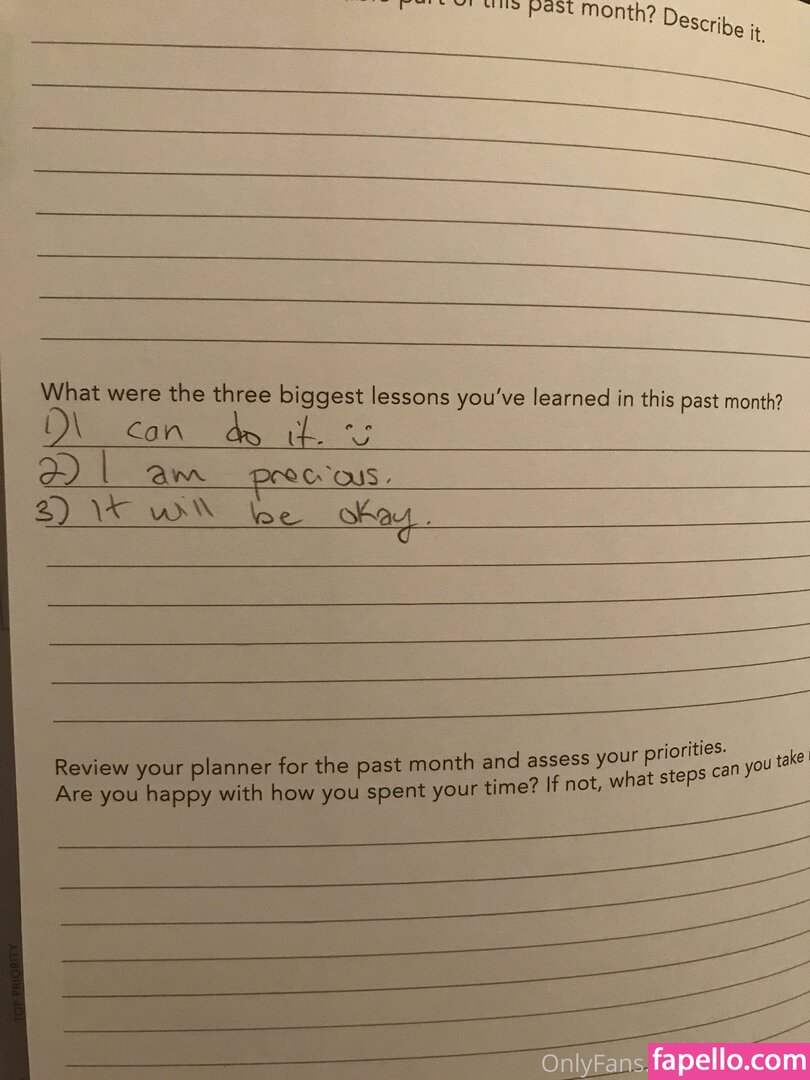 this past month? Describe it.
What were the three biggest lessons you've learned in this past month?
1) I can do it. :)
2) I am precious.
3) It will be okay.
Review your planner for the past month and assess your priorities.
Are you happy with how you spent your time? If not, what steps can you take
TOP PRIORITY
OnlyFans.
fapello.com